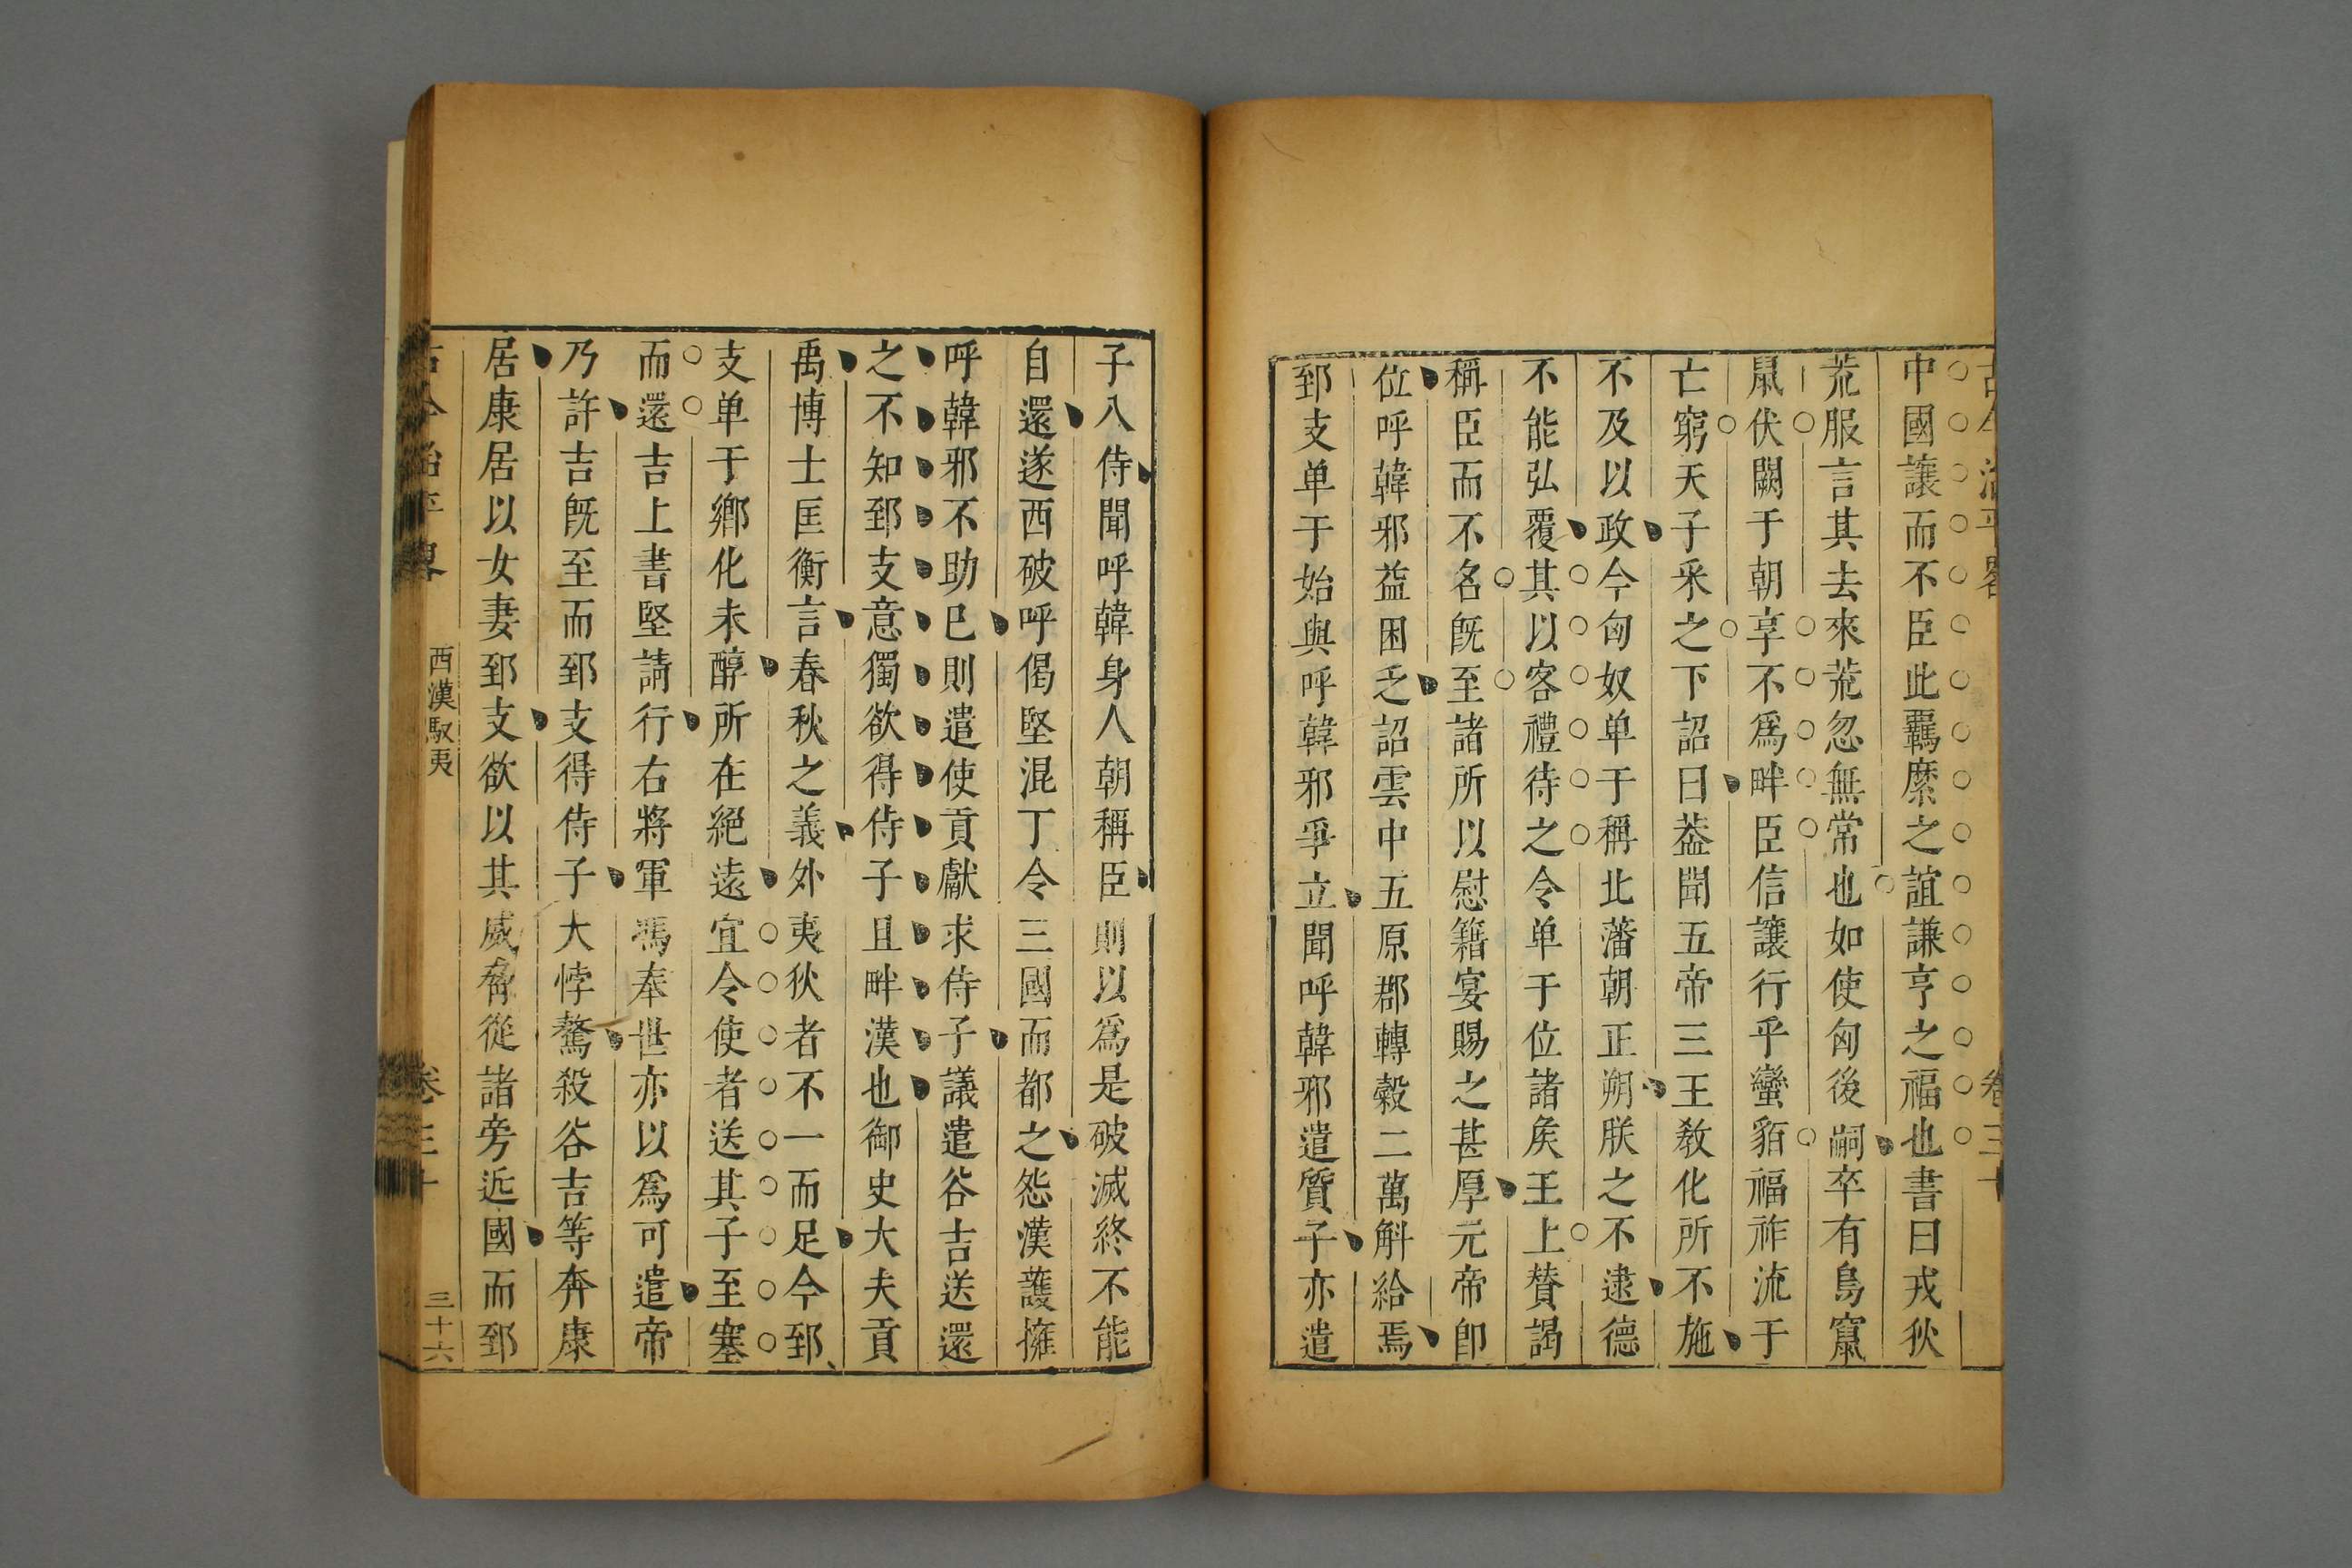 中國讓而不臣此羈縻之誼謙亨之福也書曰戎狄
荒服言其去來荒忽無常也如使匈後嗣卒有鳥竄
鼠伏闕于朝享不爲畔臣信讓行乎蠻貊福祚流于
亡窮天子采之下詔曰葢聞五帝三王教化所不施
不及以政今匈奴单于稱北藩朝正朔朕之不逮德
不能弘覆其以客禮待之令单于位諸矦王上賛謁
稱臣而不名旣至諸所以慰籍宴賜之甚厚元帝卽
位呼韓邪益困乏詔雲中五原郡轉穀二萬斛給焉
郅支单于始與呼韓邪爭立聞呼韓邪遣質子亦遣
子入侍聞呼韓身人朝稱臣則以爲是破滅終不能
自還遂西破呼偈堅混丁令三國而都之怨漢護擁
呼韓邪不助巳則遣使貢獻求侍子議遣谷吉送還
之不知郅支意獨欲得侍子且畔漢也御史大夫貢
禹博士匡衡言春秋之義外夷狄者不一而足今郅
支单于鄉化未醇所在絕遠宜令使者送其子至塞
而還吉上書堅請行右將軍馮奉世亦以爲可遣帝
乃許吉旣至而郅支得侍子大悖驁殺谷吉等奔康
居康居以女妻郅支欲以其威脅從諸旁近國而郅
西漢馭夷
卷三十
三十六